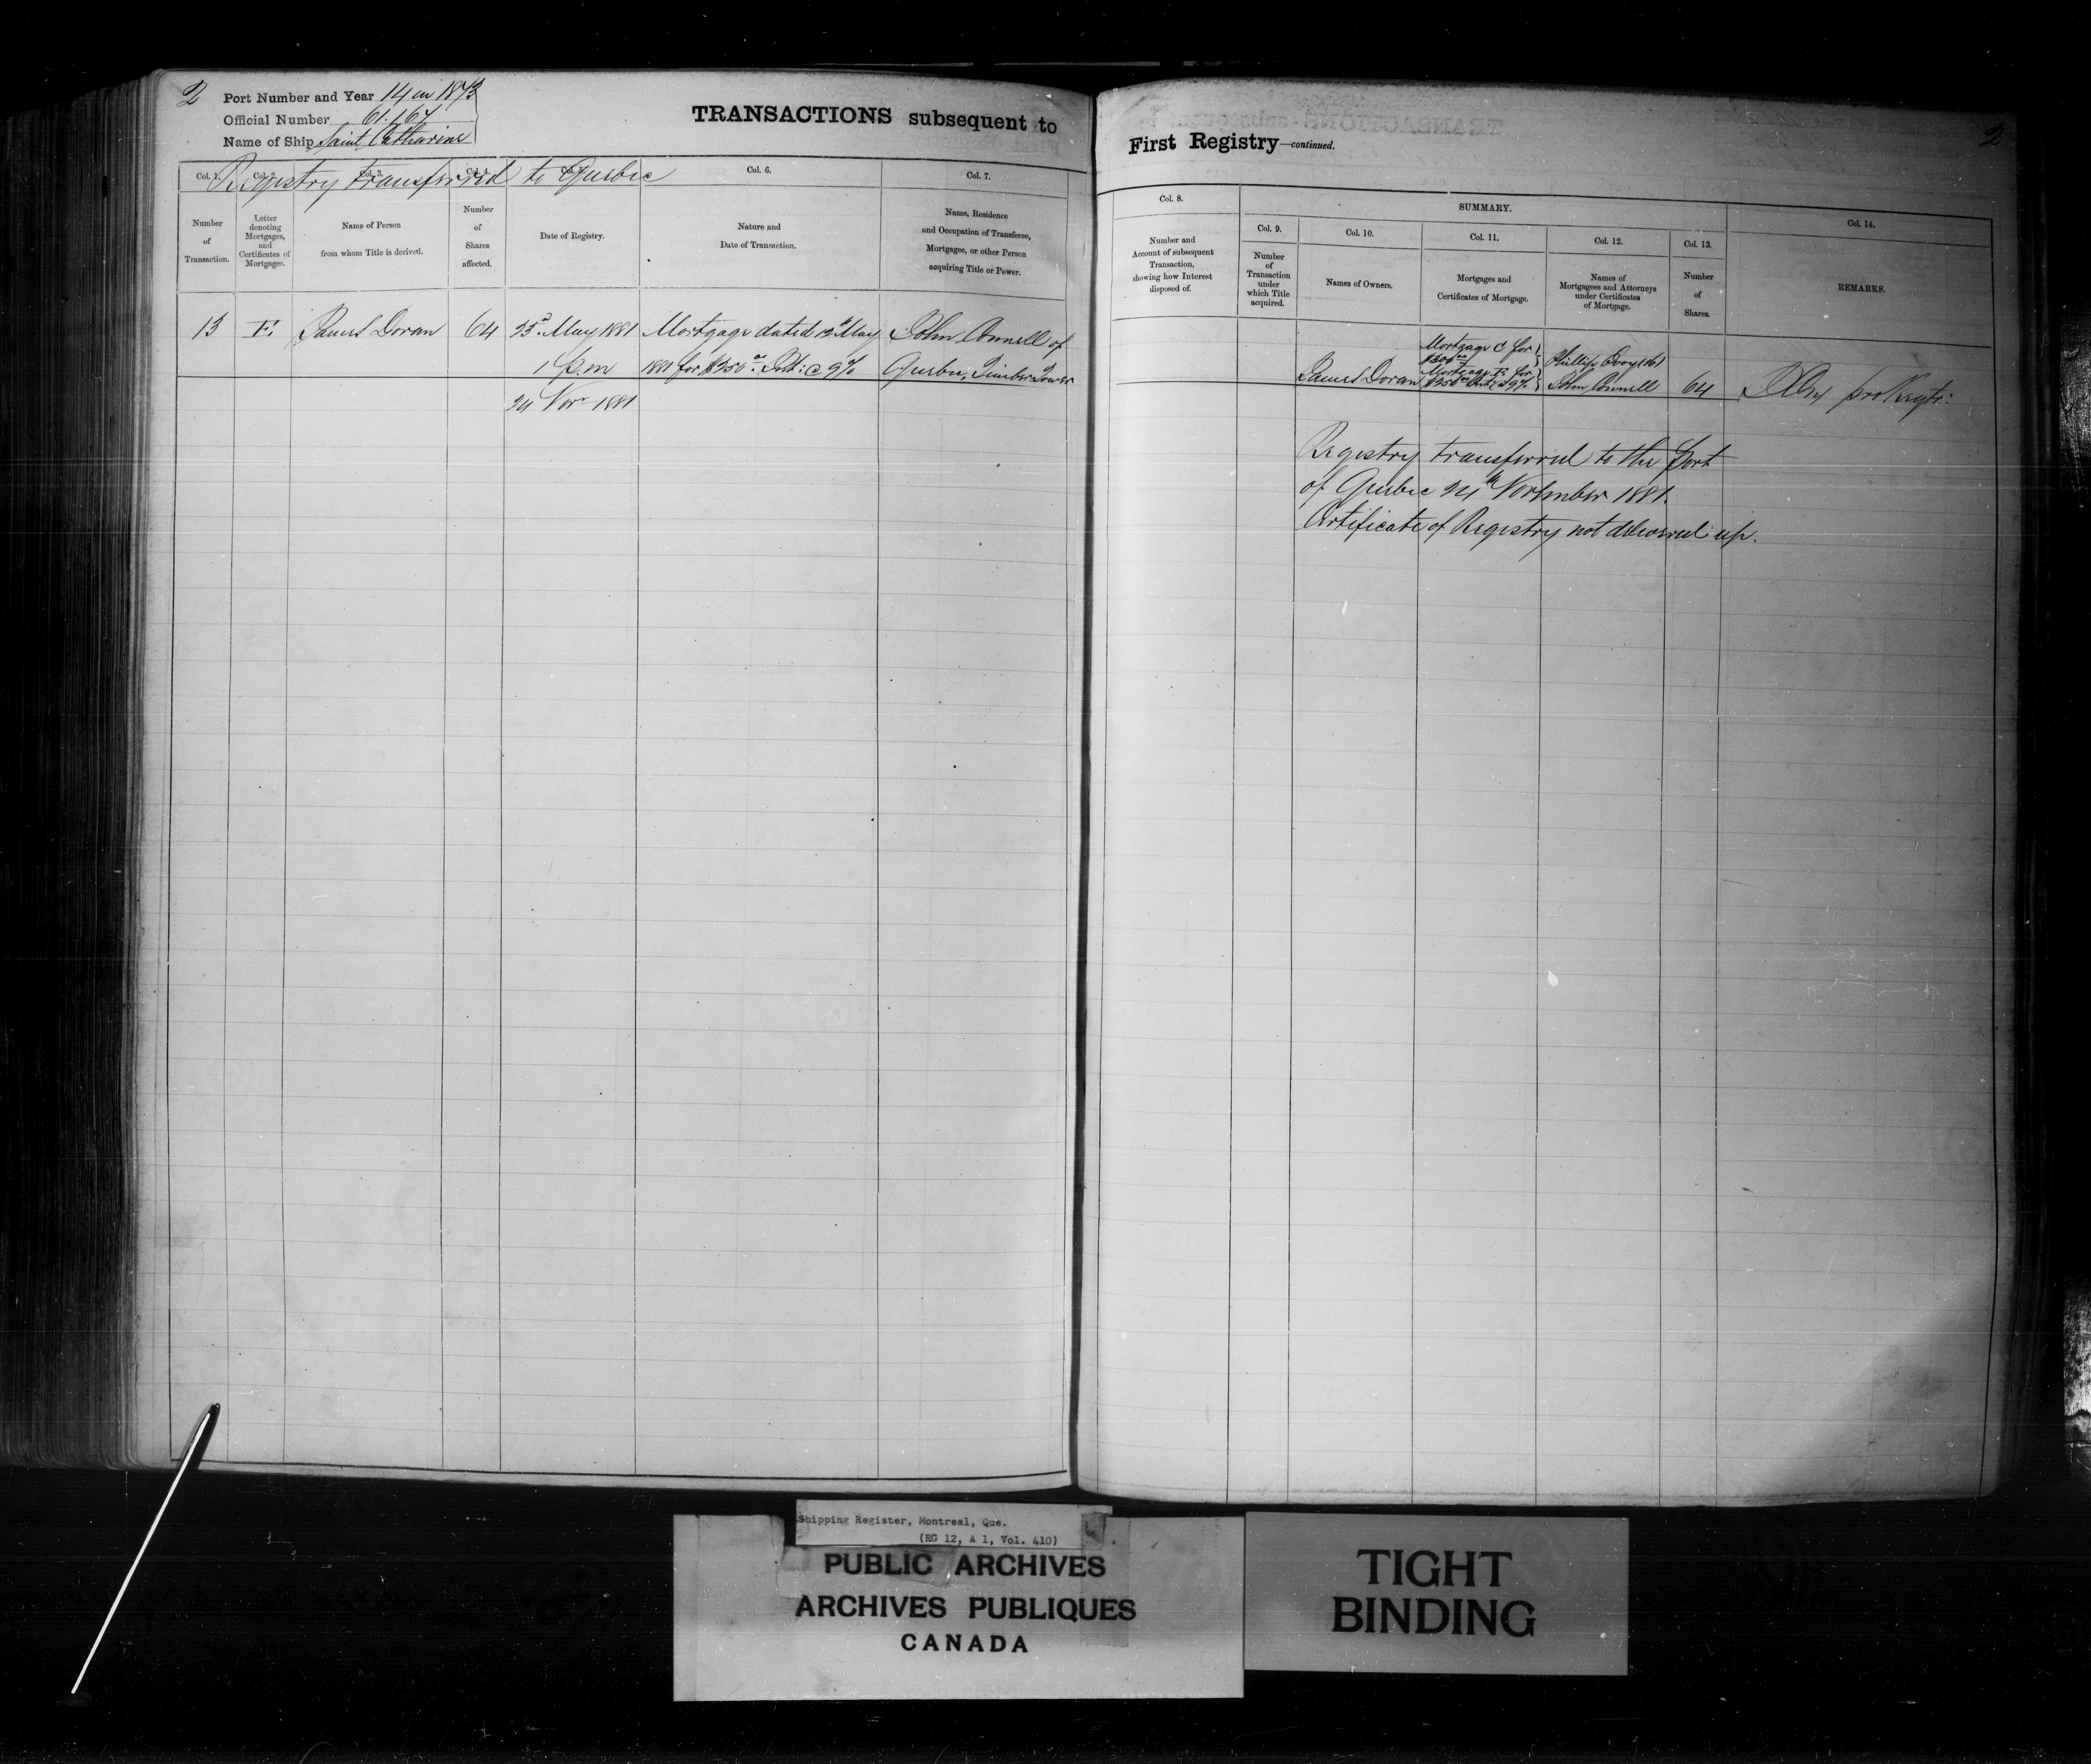 2 Port Number and Year 14 in 1873
Official Number 61.167
Name of Ship Saint Catharine
TRANSACTIONS subsequent to
Registry transferred to Quebec
Col. 1. Col. 2. Col. 3. Col. 4. Col. 5. Col. 6. Col. 7.
Number
of
Transaction.
Letter
denoting
Mortgages,
and
Certificates of
Mortgages.
Name of Person
from whom Title is derived.
Number
of
Shares
affected.
Date of Registry.
Nature and
Date of Transaction.
Name, Residence
and Occupation of Transferee,
Mortgagee, or other Person
acquiring Title or Power.
13 F. James Doran 64 23d May 1881 Mortgage dated 12th May John Connell of
1 p.m 1881 for $250.00 Int: @ 9% Quebec, Timber Tower
24 Novr 1881
First Registry—continued.
2
Col. 8.
Number and
Account of subsequent
Transaction,
showing how Interest
disposed of.
SUMMARY.
Col. 9.
Number
of
Transaction
under
which Title
acquired.
Col. 10.
Names of Owners.
Col. 11.
Mortgages and
Certificates of Mortgage.
Col. 12.
Names of
Mortgagees and Attorneys
under Certificates
of Mortgage.
Col. 13.
Number
of
Shares.
Col. 14.
REMARKS.
Mortgage C for
$300.00 Phillip
Mortgage F. for
James Doran $250.00 Int: @ 9% John Connell 64 pro Regtr:
Registry transferred to the Port
of Quebec 24th November 1881.
Certificate of Registry not delivered up.
Shipping Register, Montreal, Que.
(RG 12, A 1, Vol. 410)
PUBLIC ARCHIVES
ARCHIVES PUBLIQUES
CANADA
TIGHT
BINDING